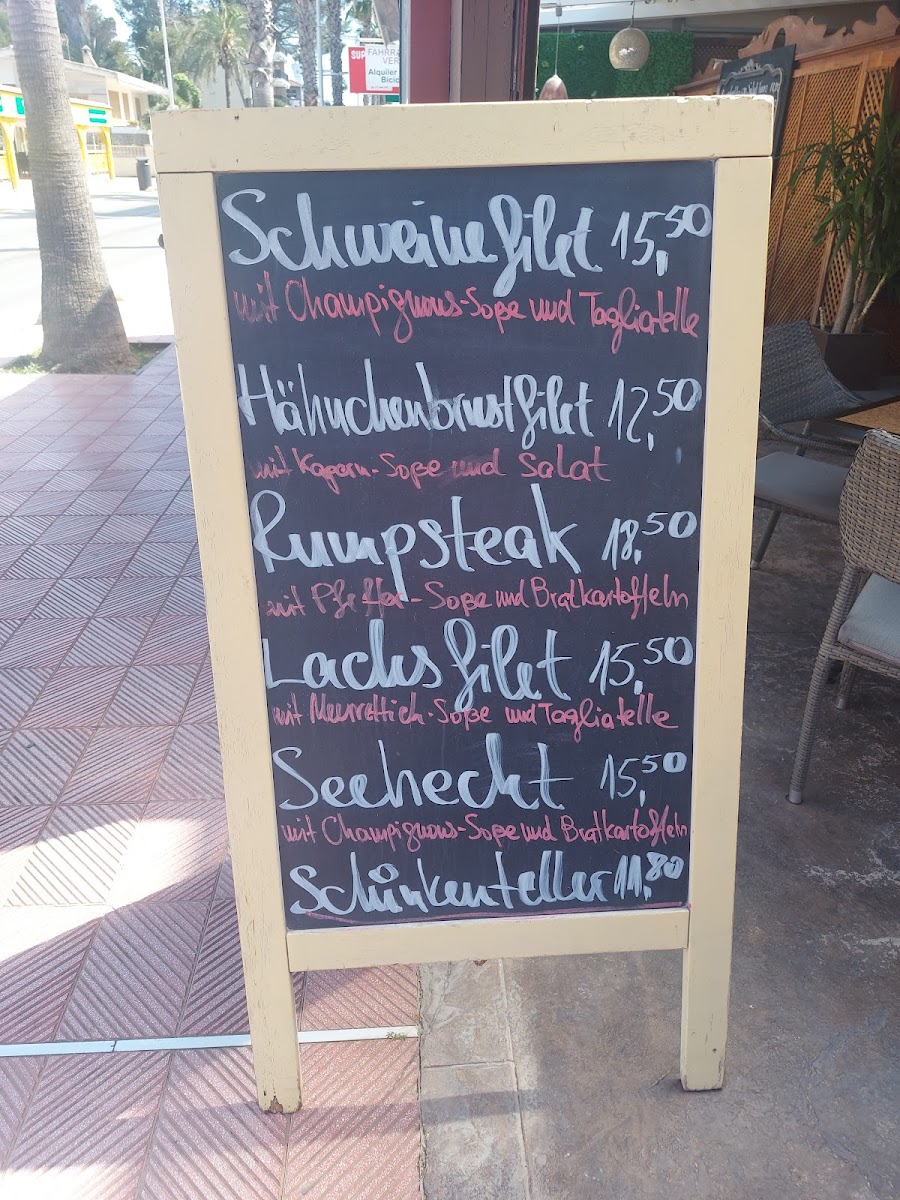 SUP
FAHRRA
VER
Alquiler
Bicic
Schweinefilet 15,50
mit Champignons-Soße und Tagliatelle
Hähnchenbrustfilet 12,50
mit Kapern-Soße und Salat
Rumpsteak 18,50
mit Pfeffer-Soße und Bratkartoffeln
Lachsfilet 15,50
mit Meerrettich-Soße und Tagliatelle
Seehecht 15,50
mit Champignons-Soße und Bratkartoffeln
Schinkenteller 11,80